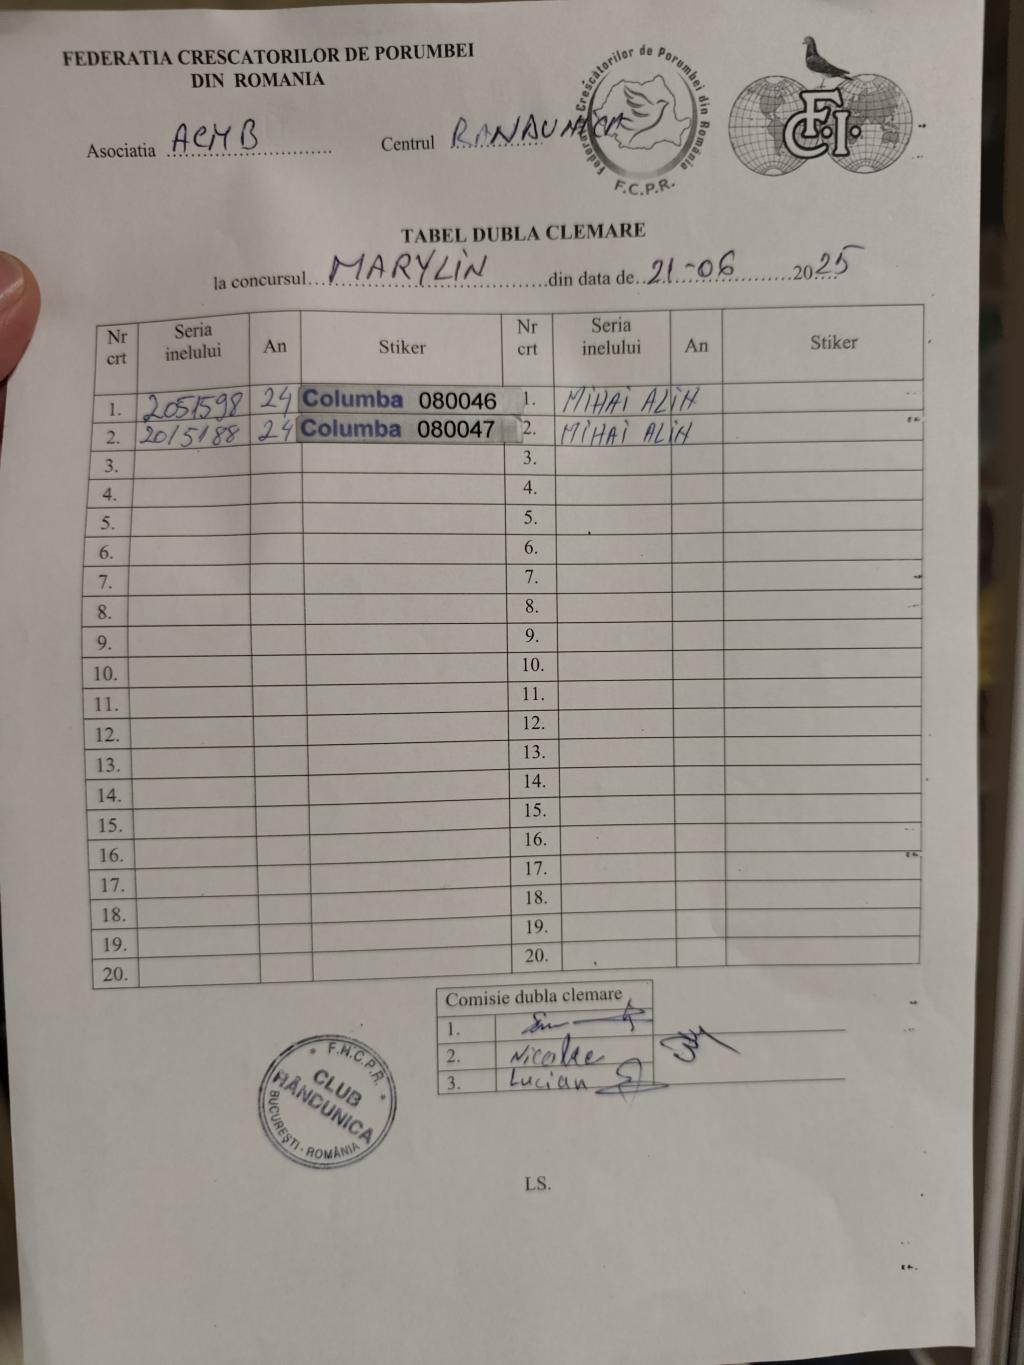 FEDERATIA CRESCATORILOR DE PORUMBEI
DIN ROMANIA
Asociatia ACMB Centrul
Federatia Crescătorilor de Porumbei din România
F.C.P.R.
F.C.I.
TABEL DUBLA CLEMARE
la concursul MARYLIN din data de 21-06 2025
Nr crt Seria inelului An Stiker Nr crt Seria inelului An Stiker
1. 2051598 24 Columba 080046 1. MIHAI ALIN
2. 2015188 24 Columba 080047 2. MIHAI ALIN
3. 3.
4. 4.
5. 5.
6. 6.
7. 7.
8. 8.
9. 9.
10. 10.
11. 11.
12. 12.
13. 13.
14. 14.
15. 15.
16. 16.
17. 17.
18. 18.
19. 19.
20. 20.
Comisie dubla clemare
1.
2. Nicolae
3. Lucian
F.N.C.P.R.
CLUB
RÂNDUNICA
BUCUREȘTI - ROMÂNIA
LS.